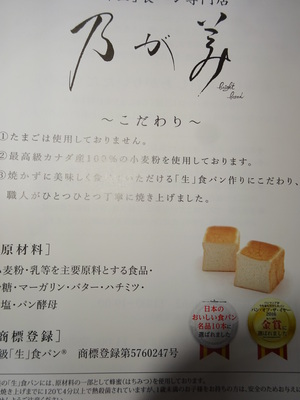 専門店
乃が美
～こだわり～
①たまごは使用しておりません。
②最高級カナダ産100%の小麦粉を使用しています。
③焼かずに美味しく いただける「生」食パン作りにこだわり、
職人がひとつひとつ丁寧に焼き上げました。
原材料］
麦粉・乳等を主要原料とする食品・
糖・マーガリン・バター・ハチミツ・
塩・パン酵母
日本の
おいしい食パン
名品10本に
選ばれました
金賞
商標登録］
級「生」食パン® 商標登録第5760247号
の「生」食パンには、原材料の一部として蜂蜜(はちみつ)を使用しております。